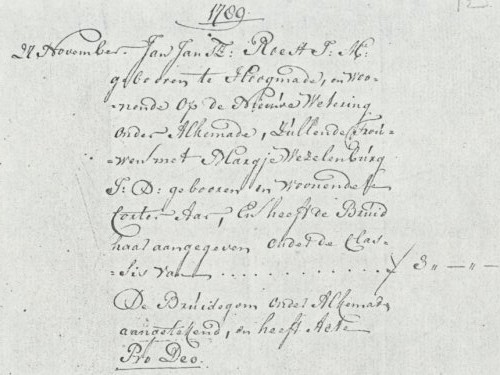 1789
27 November Jan Jansz: Roest J: M:
gebooren te Hoogmade, en woo-
-nende Op de Nieuwe Wetering
onder Alkemade, Zullende Trou-
-wen met Margje Wezelenburg
J: D: gebooren en Woonende te
Corter Aar, En heeft de Bruid
haar aangegeven onder de Clas-
-sis van . . . . . . . . . . . . 3 „ — „ —
De Bruidegom onder Alkemade
aangetekend, en heeft Acte
Pro Deo.